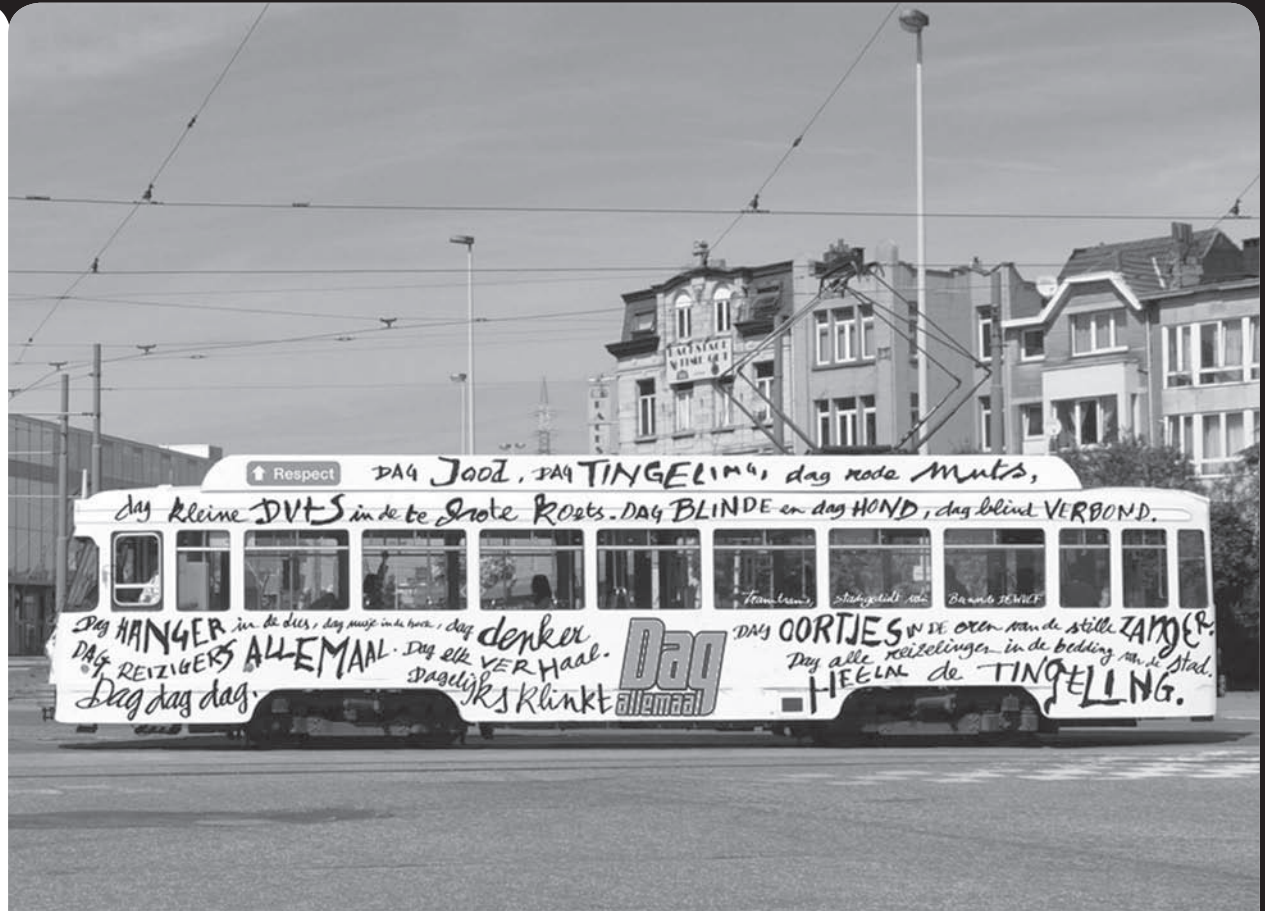 Respect
DAG Jood, DAG TINGELING, dag rode Muts,
dag kleine DUTS in de te Grote Koets. DAG BLINDE en dag HOND, dag blind VERBOND.
stadsgedicht van
Dag HANGER in de lus, dag musje in de hoek, dag denker
DAG REIZIGERS ALLEMAAL. Dag elk VERHaal.
Dag dag dag. Dagelijks klinkt
Dag
allemaal
DAG OORTJES IN DE oren van de stille ZANGER.
Dag alle reizelingen in de bedding van de stad.
HEELAL de TINGELING.